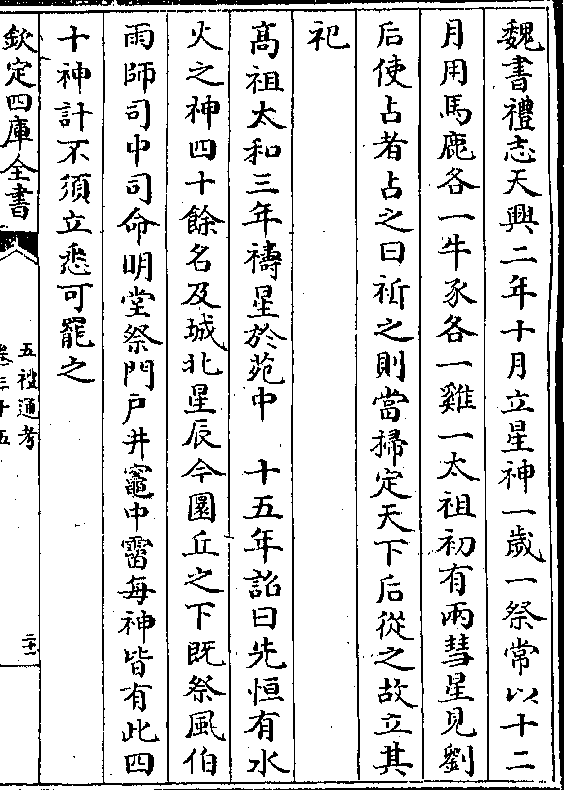 魏書禮志天興二年十月立星神一歲一祭常以十二
月用馬鹿各一牛豕各一雞一太祖初有兩彗星見劉
后使占者占之曰祈之則當掃定天下后從之故立其
祀
高祖太和三年禱星於苑中　十五年詔曰先恒有水
火之神四十餘名及城北星辰今圜丘之下既祭風伯
雨師司中司命明堂祭門戶井竈中霤每神皆有此四
十神計不須立悉可罷之
欽定四庫全書
五禮通考
卷三十五